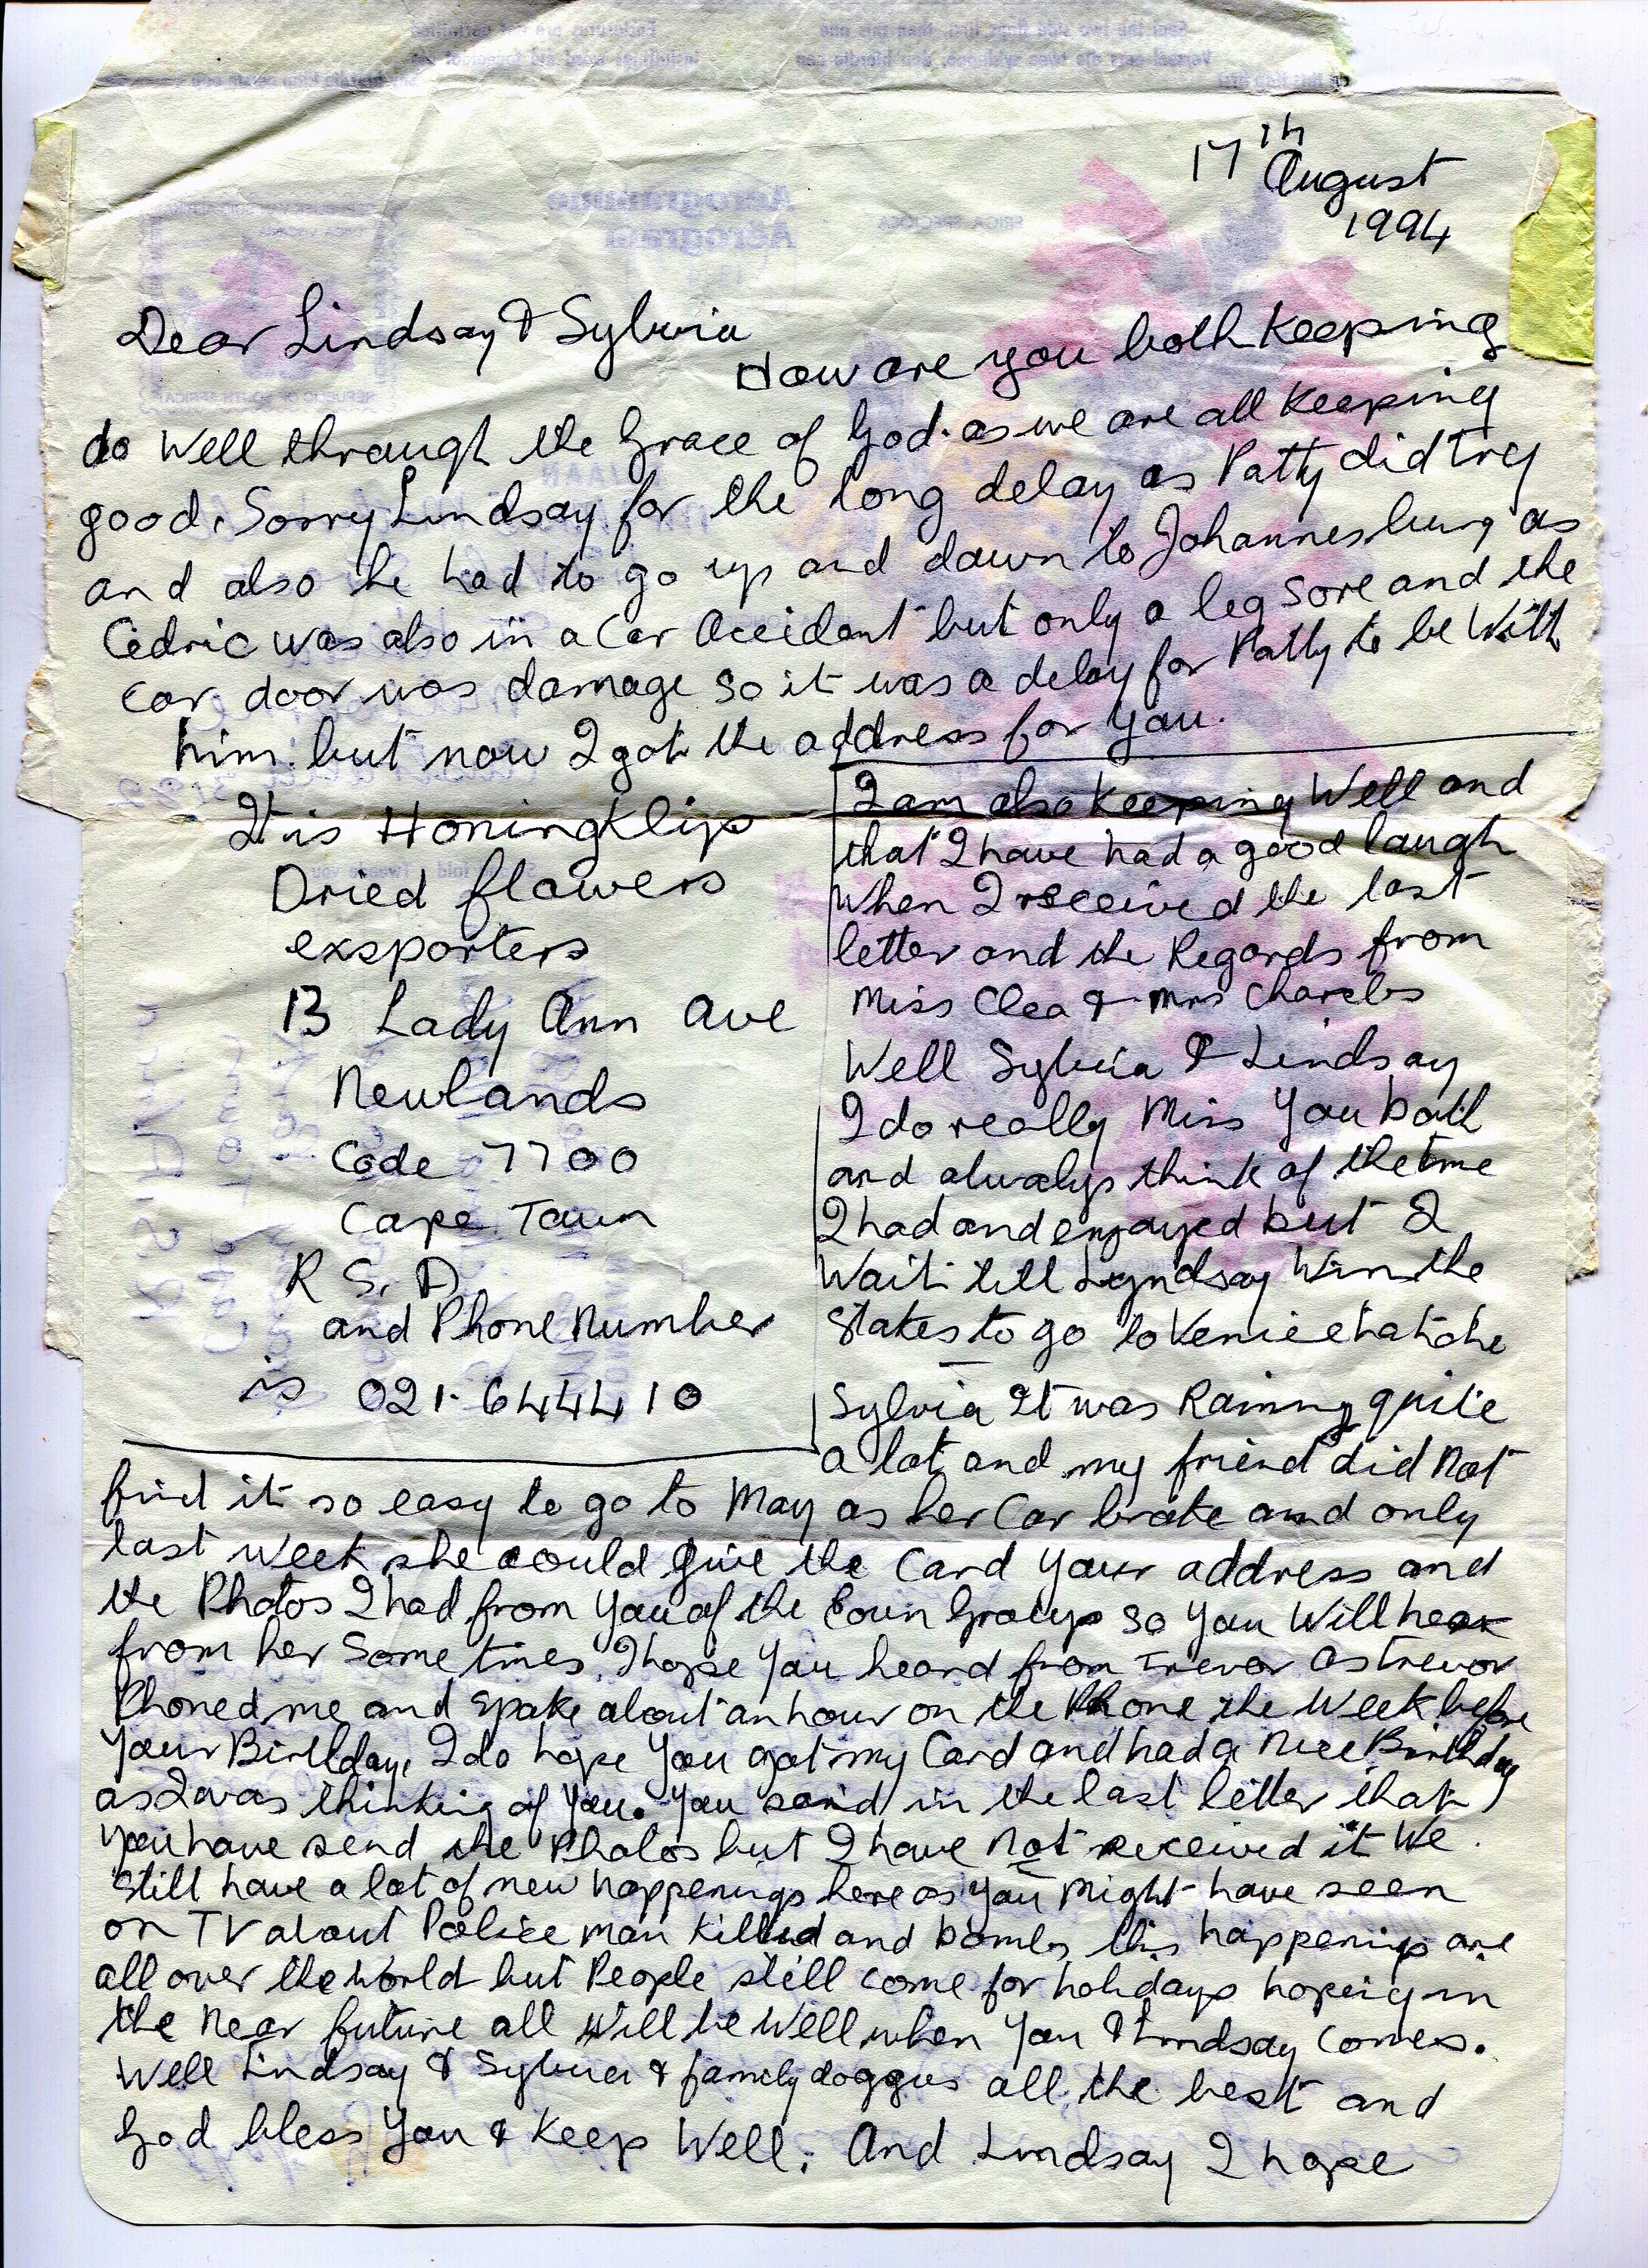 17th
August
1994
Dear Lindsay & Sylvia
How are you both keeping
do well through the Grace of God. as we are all keeping
good. Sorry Lindsay for the long delay as Patty did try
and also he had to go up and down to Johannesburg as
Cedric was also in a Car Accident but only a leg sore and the
car door was damage so it was a delay for Patty to be with
him. but now I got the address for you.
It is Honingklip
Dried flowers
exsporters
13 Lady Ann Ave
Newlands
Code 7700
Cape Town
R S. A
and Phone Number
is 021-644410
I am also keeping Well and
that I have had a good laugh
when I received the last
letter and the Regards from
Miss Clea & Mrs Charels
Well Sylvia & Lindsay
I do really Miss You both
and always think of the time
I had and enjoyed but I
Wait till Lyndsay Win the
Stakes to go to Venice
Sylvia It was Raining quite
a lot and my friend did Not
find it so easy to go to May as her Car broke and only
last week she could give the Card Your address and
the Photos I had from You of the Group so You Will hear
from her Some times. I hope You heard from Trevor as trevor
Phoned me and spoke about an hour on the Phone the Week before
Your Birthday, I do hope You got my Card and had a Nice Birthday
as I was thinking of You. You said in the last letter that
You have send the Photos but I have Not received it We
still have a lot of new happenings here as You Might have seen
on TV about Police man Killed and bombs this happenings are
all over the World but People still come for holidays hoping in
the Near future all Will be Well when You & Lindsay comes.
Well Lindsay & Sylvia & family doggies all the best and
God bless You & Keep Well. And Lindsay I hope